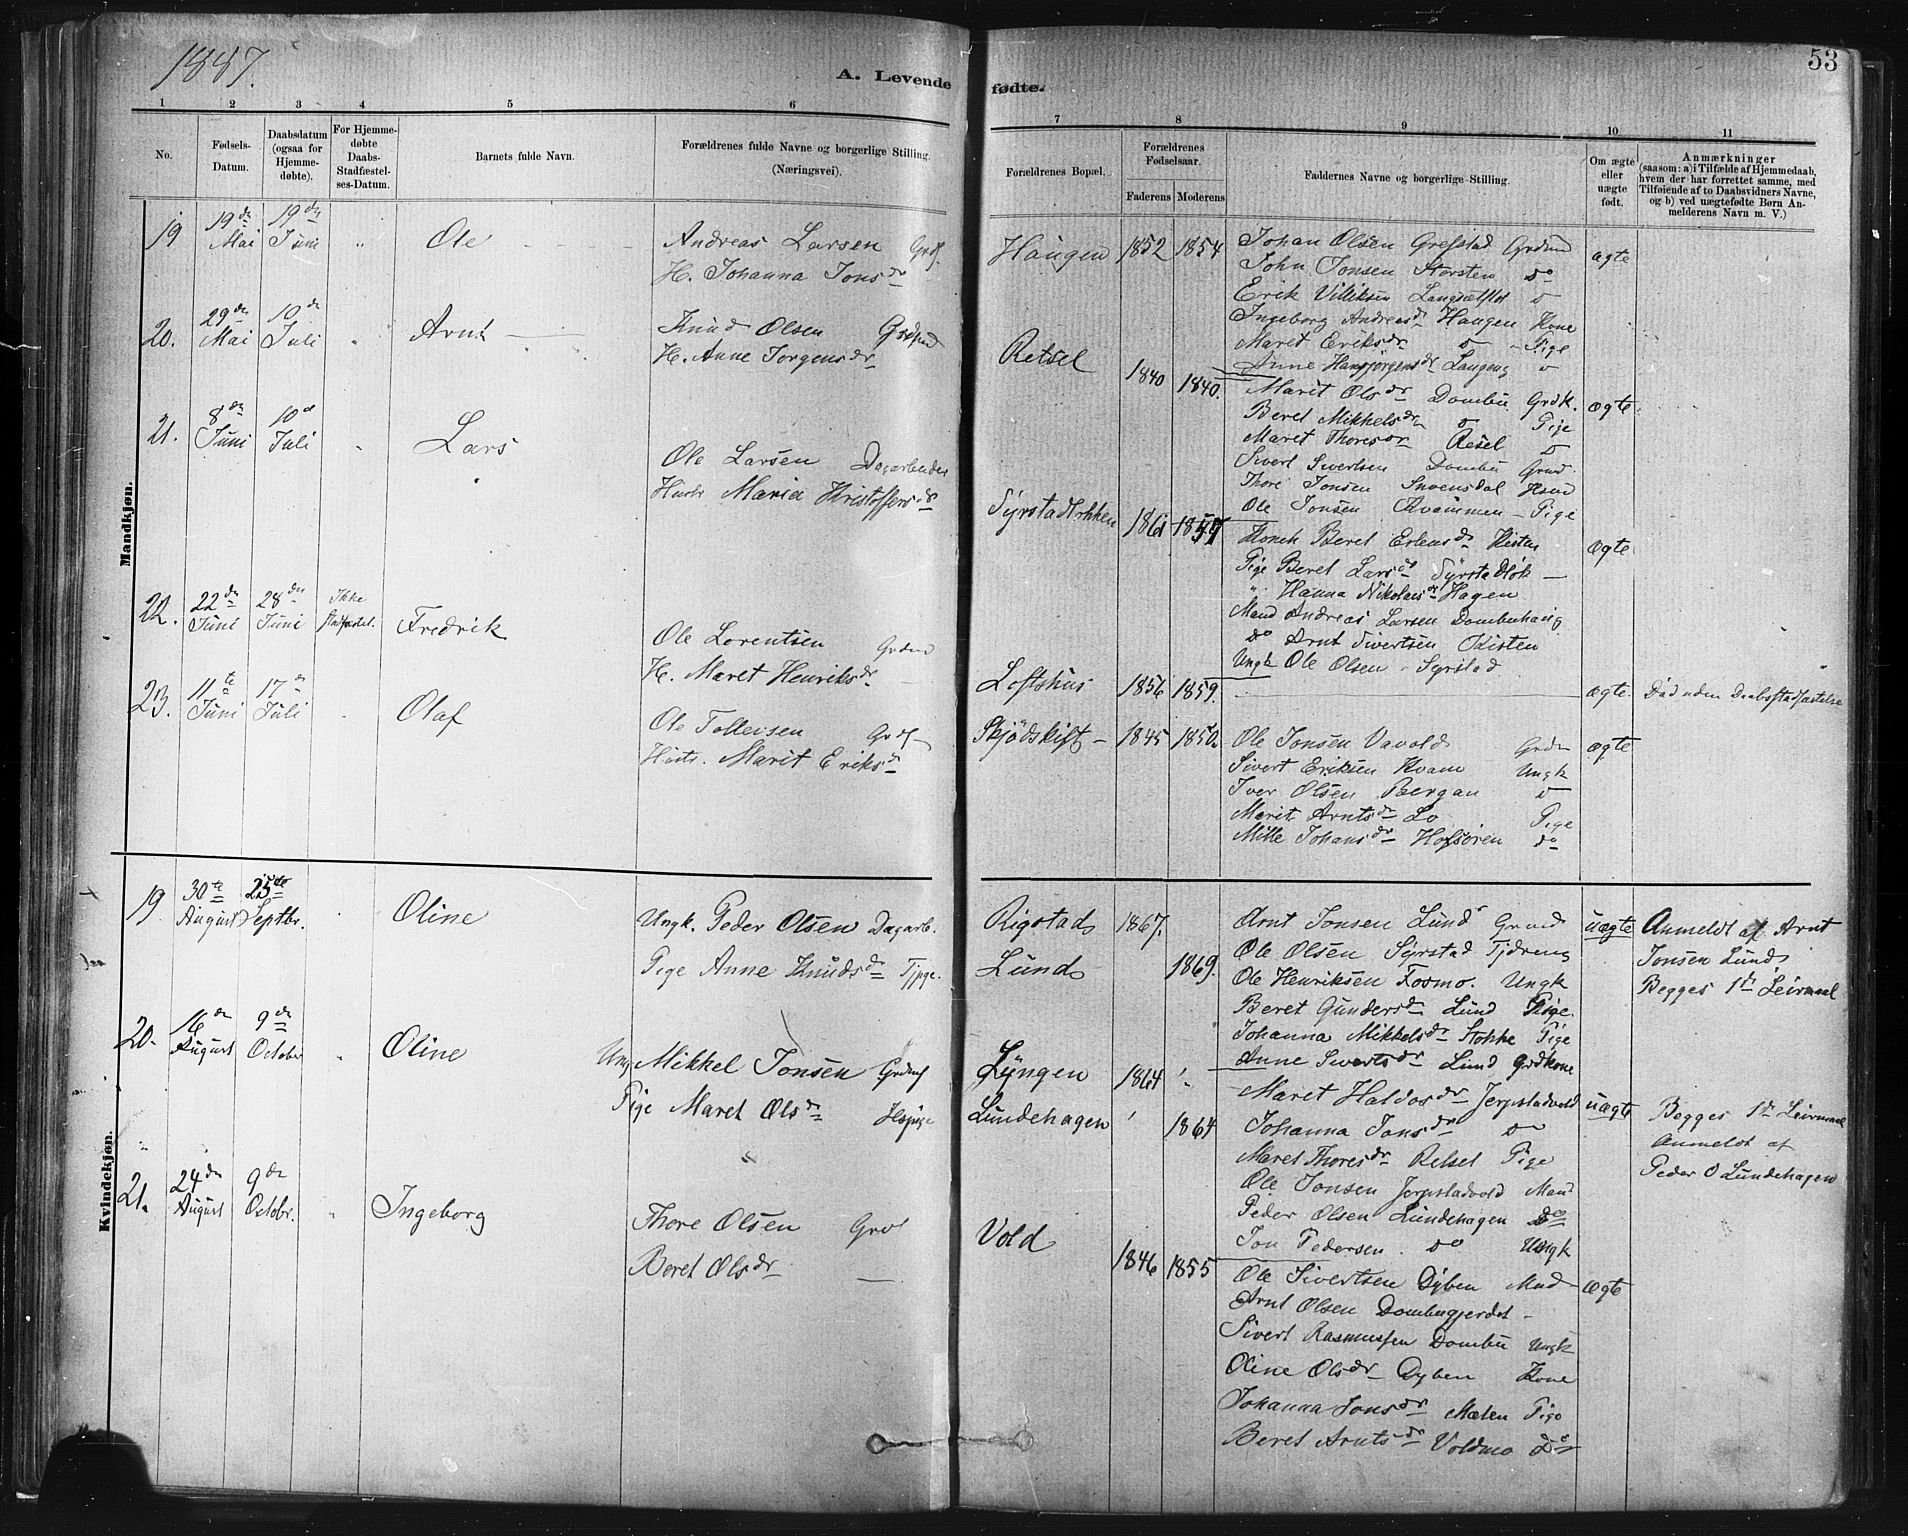 1887.
A. Levende
fødte.
53
1 2 3 4 5 6 7 8 9 10 11
No.
Fødsels-Datum.
Daabsdatum (ogsaa for Hjemme-døbte).
For Hjemme-døbte Daabs-Stadfæstel-ses-Datum.
Barnets fulde Navn.
Forældrenes fulde Navne og borgerlige Stilling. (Næringsvei).
Forældrenes Bopæl.
Forældrenes Fødselsaar.
Faderens Moderens
Faddernes Navne og borgerlige Stilling.
Om ægte eller uægte født.
Anmærkninger
(saasom: a) i Tilfælde af Hjemmedaab,
hvem der har forrettet samme, med
Tilføiende af to Daabsvidners Navne,
og b) ved uægtefødte Børn An-
melderens Navn m. V.)
Mandkjøn.
19 19de Mai 19de Juni " Ole
Andreas Larsen
H. Johanna Jonsdr
Haugen 1852 1854
Johan Olsen Grefstad Grdmd
John Jonsen Storsten do
Erik Villiksen Langsætflot
Ingeborg Andreasdr Haugen Kone
Maret Eriksdr Pige
Anne Hansjørgensdr Langeng
ægte
20. 29de Mai 10de Juli " Arnt
Knud Olsen
H. Anne Jorgensdr
Retsel 1840 1840.
Marit Olsdr Dombu Grdk.
Beret Mikkelsdr Pige
Maret Thoresdr Resel
Sivert Sivertsen Dombu
Thore Jonsen Svensdal
Ole Jonsen Kvammen Pige
ægte
21. 8de Juni 10de Juli " Lars
Ole Larsen Dagarbeider
Hustr Maria Kristoffersdr
1861 1857
Beret Kisten
Pige Beret Larsdr Syrstadløk
" Hanna Nikolaisdr Hagen
Mand Andreas Larsen Dombuhaug
do Arnt Sivertsen Kisten
Ungk Ole Olsen Syrstad
ægte
22. 22de Juni 28de Juni Ikke stadfæstet. Fredrik
Ole Lorentsen
H. Maret Henriksdr
Loftshus 1856 1859.
ægte. Død uden Daabsstadfæstelse
23. 11te Juni 17de Juli Olaf
Ole Tollevsen
Hustr. Marit Eriksdr
Skjødskift 1845 1850.
Ole Jonsen Vavold
Sivert Eriksen Kvam Ungk
Iver Olsen Bergan
Marit Arntsdr Lo Pige
Mille Johansdr Hofsøren do
ægte
Kvindekjøn.
19. 30te August 25de Septbr. Oline
Ungk. Peder Olsen Dagarb.
Pige Anne Knudsdr Tjpge.
Rigstad 1867.
Lund 1869.
Arnt Jonsen Lund
Ole Olsen Syrstad Tjdreng
Ole Henriksen Fosmo. Ungk
Beret Gundersdr Lund Pige.
Johanna Mikkelsdr Stokke Pige
Anne Sivertsdr Lund Grdkone
uægte Anmeldt af Arnt
Jonsen Lund
Begges 1ste Leiermaal
20. 16de August 9de Octobr " Oline
Ung Mikkel Jonsen
Pige Maret Olsdr
Lyngen 1864
Lundehagen 1864
Maret Haldosdr Jerpstadvold
Johanna Jonsdr do
Maret Thoresdr Retsel Pige
Ole Jonsen Jerpstadvold Mand
Peder Olsen Lundehagen do
Jon Pedersen. do Ungk
uægte Begges 1ste Leiermaal
Anmeldt af
Peder O Lundehagen
21. 24de August 9de Octobr. " Ingeborg
Thore Olsen
Beret Olsdr
Vold 1846 1855
Ole Sivertsen Dyben
Arnt Olsen Dombugjerdet
Sivert Rasmussen Dombu Ungk
Oline Olsdr Dyben Kone
Johanna Jonsdr Mælen Pige
Beret Arntsdr Voldmo do
ægte